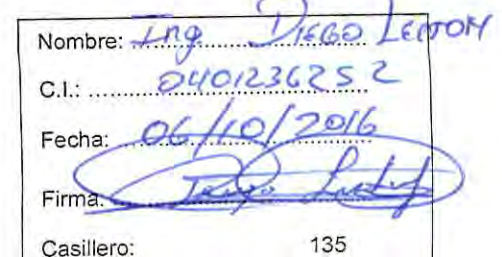 Nombre: Ing. DIEGO LEITON
C.I.: 0401236252
Fecha: 06/10/2016
Firma:
Casillero: 135